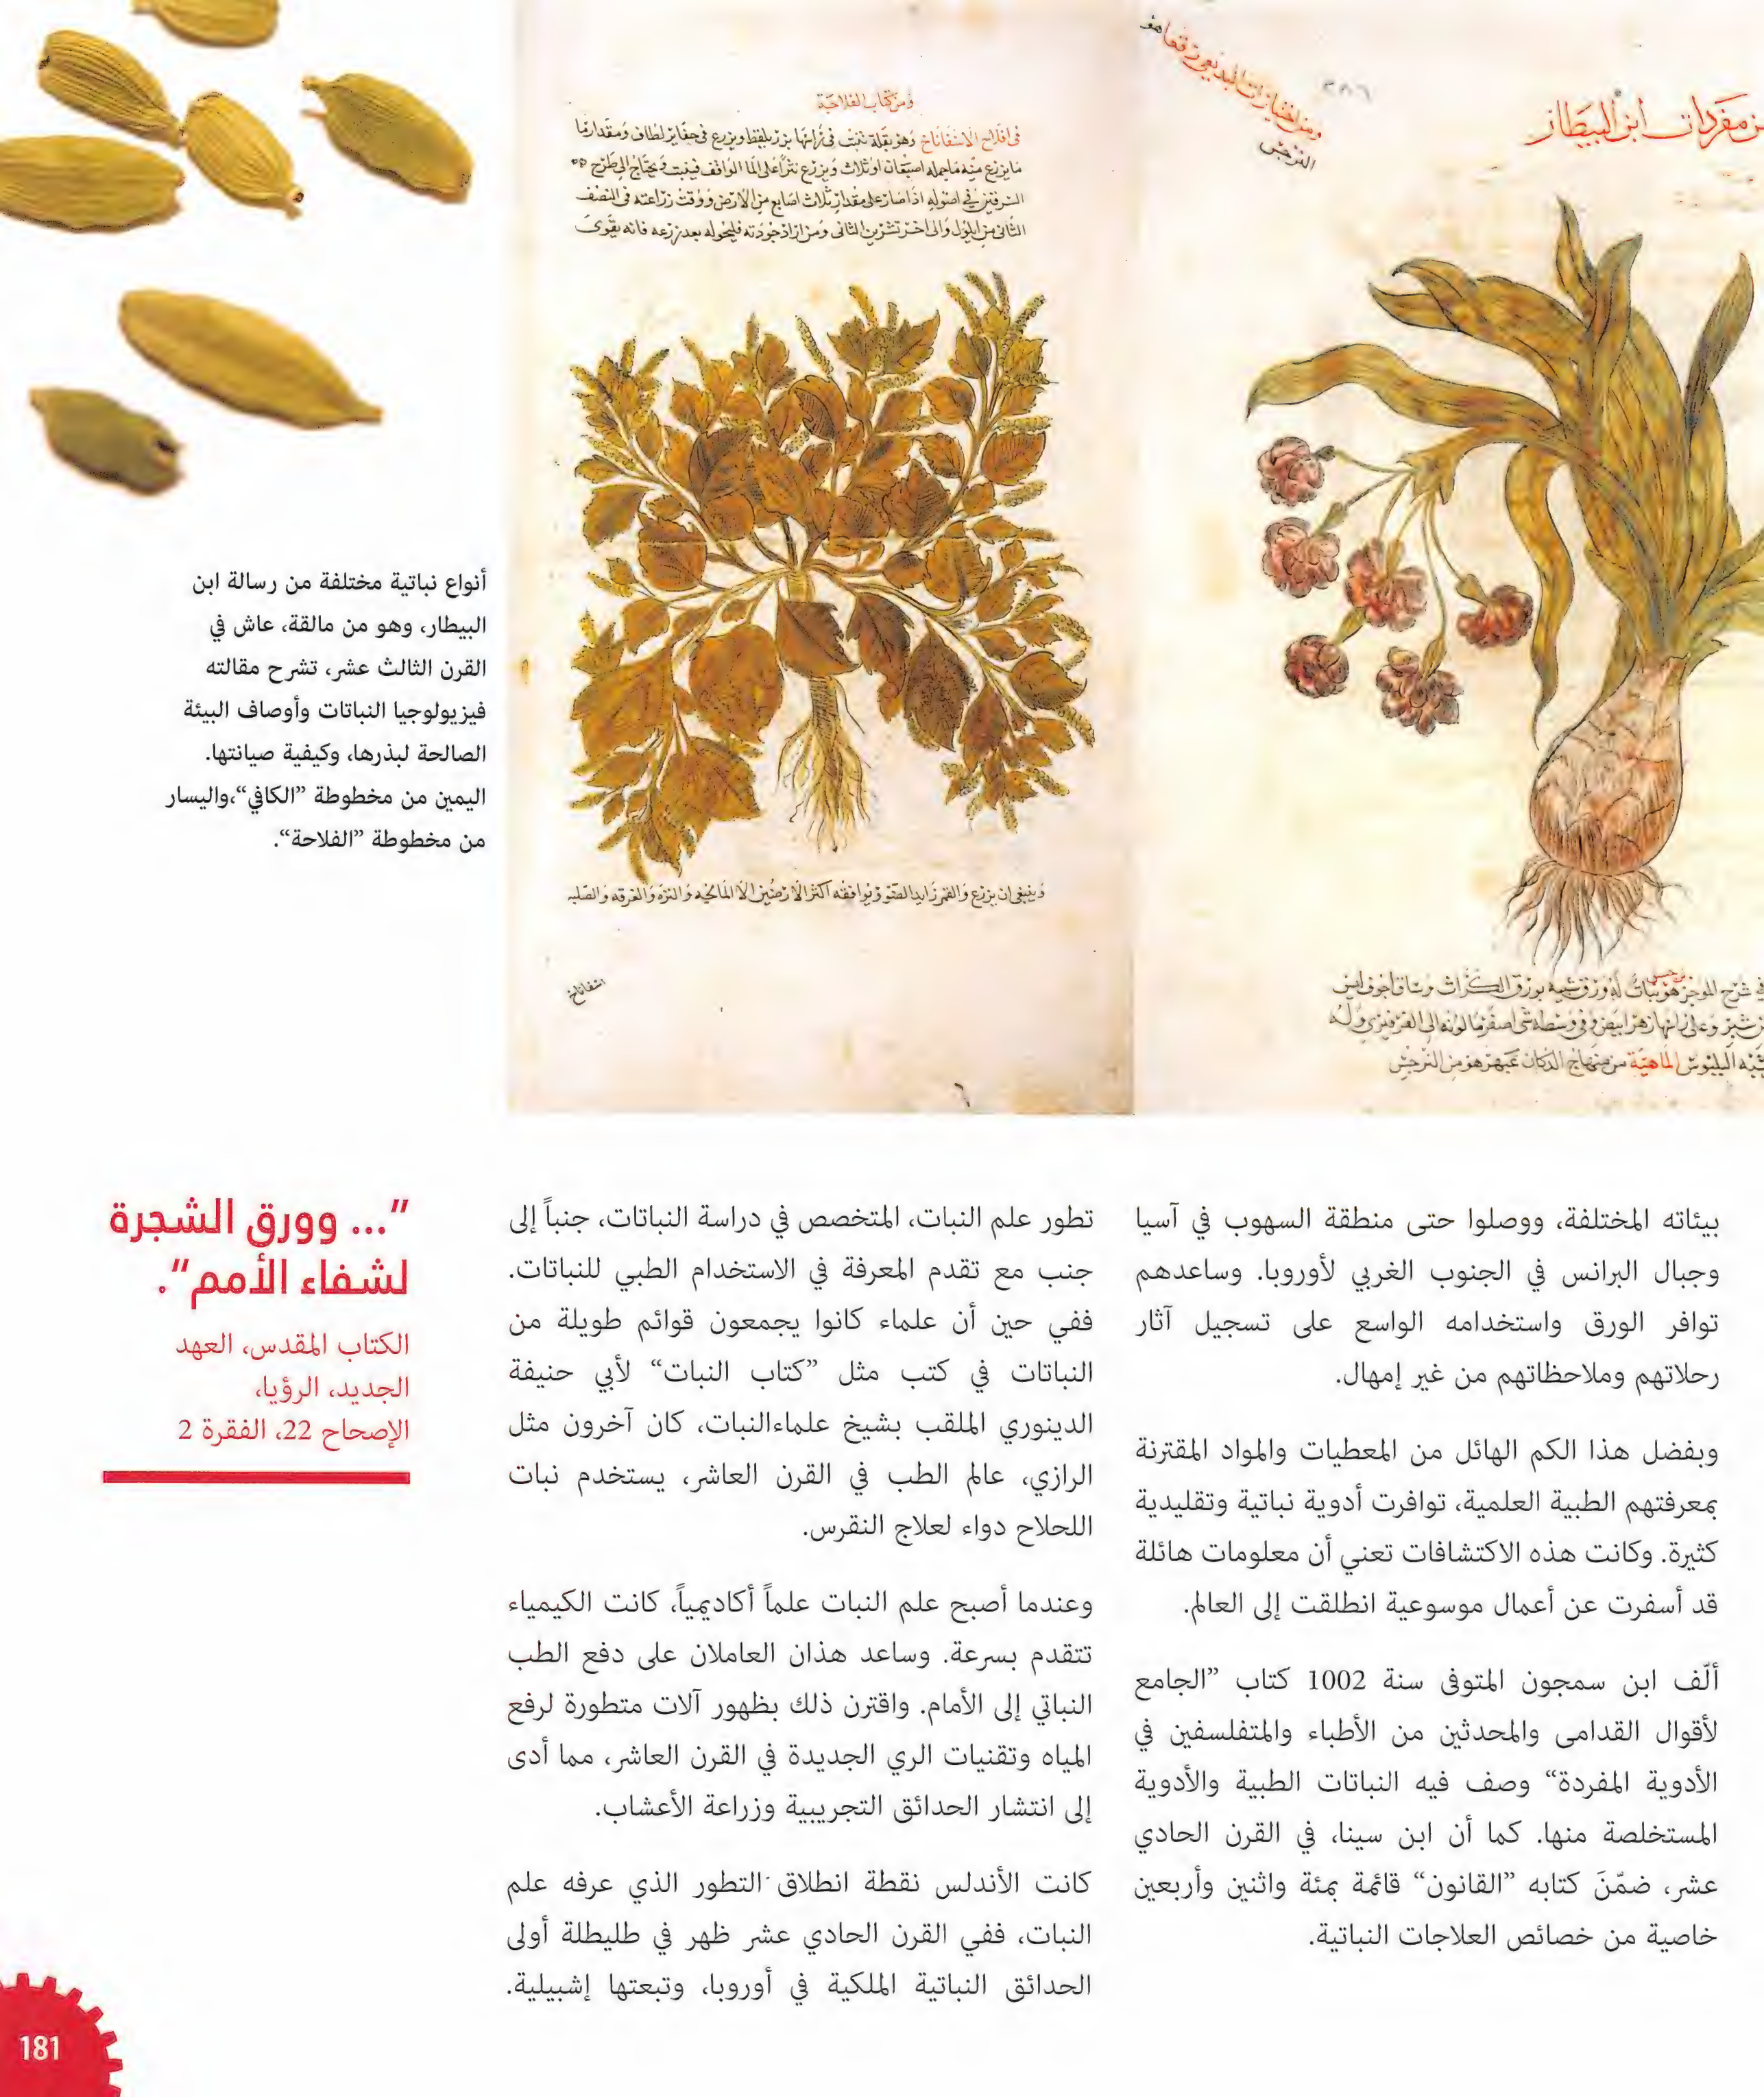 ومن كتاب الفلاحة
في افلاح الاسفاناخ وهو بقلة تنبت في
أنواع نباتية مختلفة من رسالة ابن
البيطار، وهو من مالقة، عاش في
القرن الثالث عشر، تشرح مقالته
فيزيولوجيا النباتات وأوصاف البيئة
الصالحة لبذرها، وكيفية صيانتها.
اليمين من مخطوطة ”الكافي“،واليسار
من مخطوطة ”الفلاحة“.
مفردات ابن البيطار
النرجس
اسفاناخ
بيئاته المختلفة، ووصلوا حتى منطقة السهوب في آسيا
وجبال البرانس في الجنوب الغربي لأوروبا. وساعدهم
توافر الورق واستخدامه الواسع على تسجيل آثار
رحلاتهم وملاحظاتهم من غير إمهال.
وبفضل هذا الكم الهائل من المعطيات والمواد المقترنة
بمعرفتهم الطبية العلمية، توافرت أدوية نباتية وتقليدية
كثيرة. وكانت هذه الاكتشافات تعني أن معلومات هائلة
قد أسفرت عن أعمال موسوعية انطلقت إلى العالم.
ألّف ابن سمجون المتوفى سنة 1002 كتاب ”الجامع
لأقوال القدامى والمحدثين من الأطباء والمتفلسفين في
الأدوية المفردة“ وصف فيه النباتات الطبية والأدوية
المستخلصة منها. كما أن ابن سينا، في القرن الحادي
عشر، ضمّنَ كتابه ”القانون“ قائمة بمئة واثنين وأربعين
خاصية من خصائص العلاجات النباتية.
تطور علم النبات، المتخصص في دراسة النباتات، جنباً إلى
جنب مع تقدم المعرفة في الاستخدام الطبي للنباتات.
ففي حين أن علماء كانوا يجمعون قوائم طويلة من
النباتات في كتب مثل ”كتاب النبات“ لأبي حنيفة
الدينوري الملقب بشيخ علماءالنبات، كان آخرون مثل
الرازي، عالم الطب في القرن العاشر، يستخدم نبات
اللحلاح دواء لعلاج النقرس.
وعندما أصبح علم النبات علماً أكاديمياً، كانت الكيمياء
تتقدم بسرعة. وساعد هذان العاملان على دفع الطب
النباتي إلى الأمام. واقترن ذلك بظهور آلات متطورة لرفع
المياه وتقنيات الري الجديدة في القرن العاشر، مما أدى
إلى انتشار الحدائق التجريبية وزراعة الأعشاب.
كانت الأندلس نقطة انطلاق التطور الذي عرفه علم
النبات، ففي القرن الحادي عشر ظهر في طليطلة أولى
الحدائق النباتية الملكية في أوروبا، وتبعتها إشبيلية.
”... وورق الشجرة
لشفاء الأمم“.
الكتاب المقدس، العهد
الجديد، الرؤيا،
الإصحاح 22، الفقرة 2
181